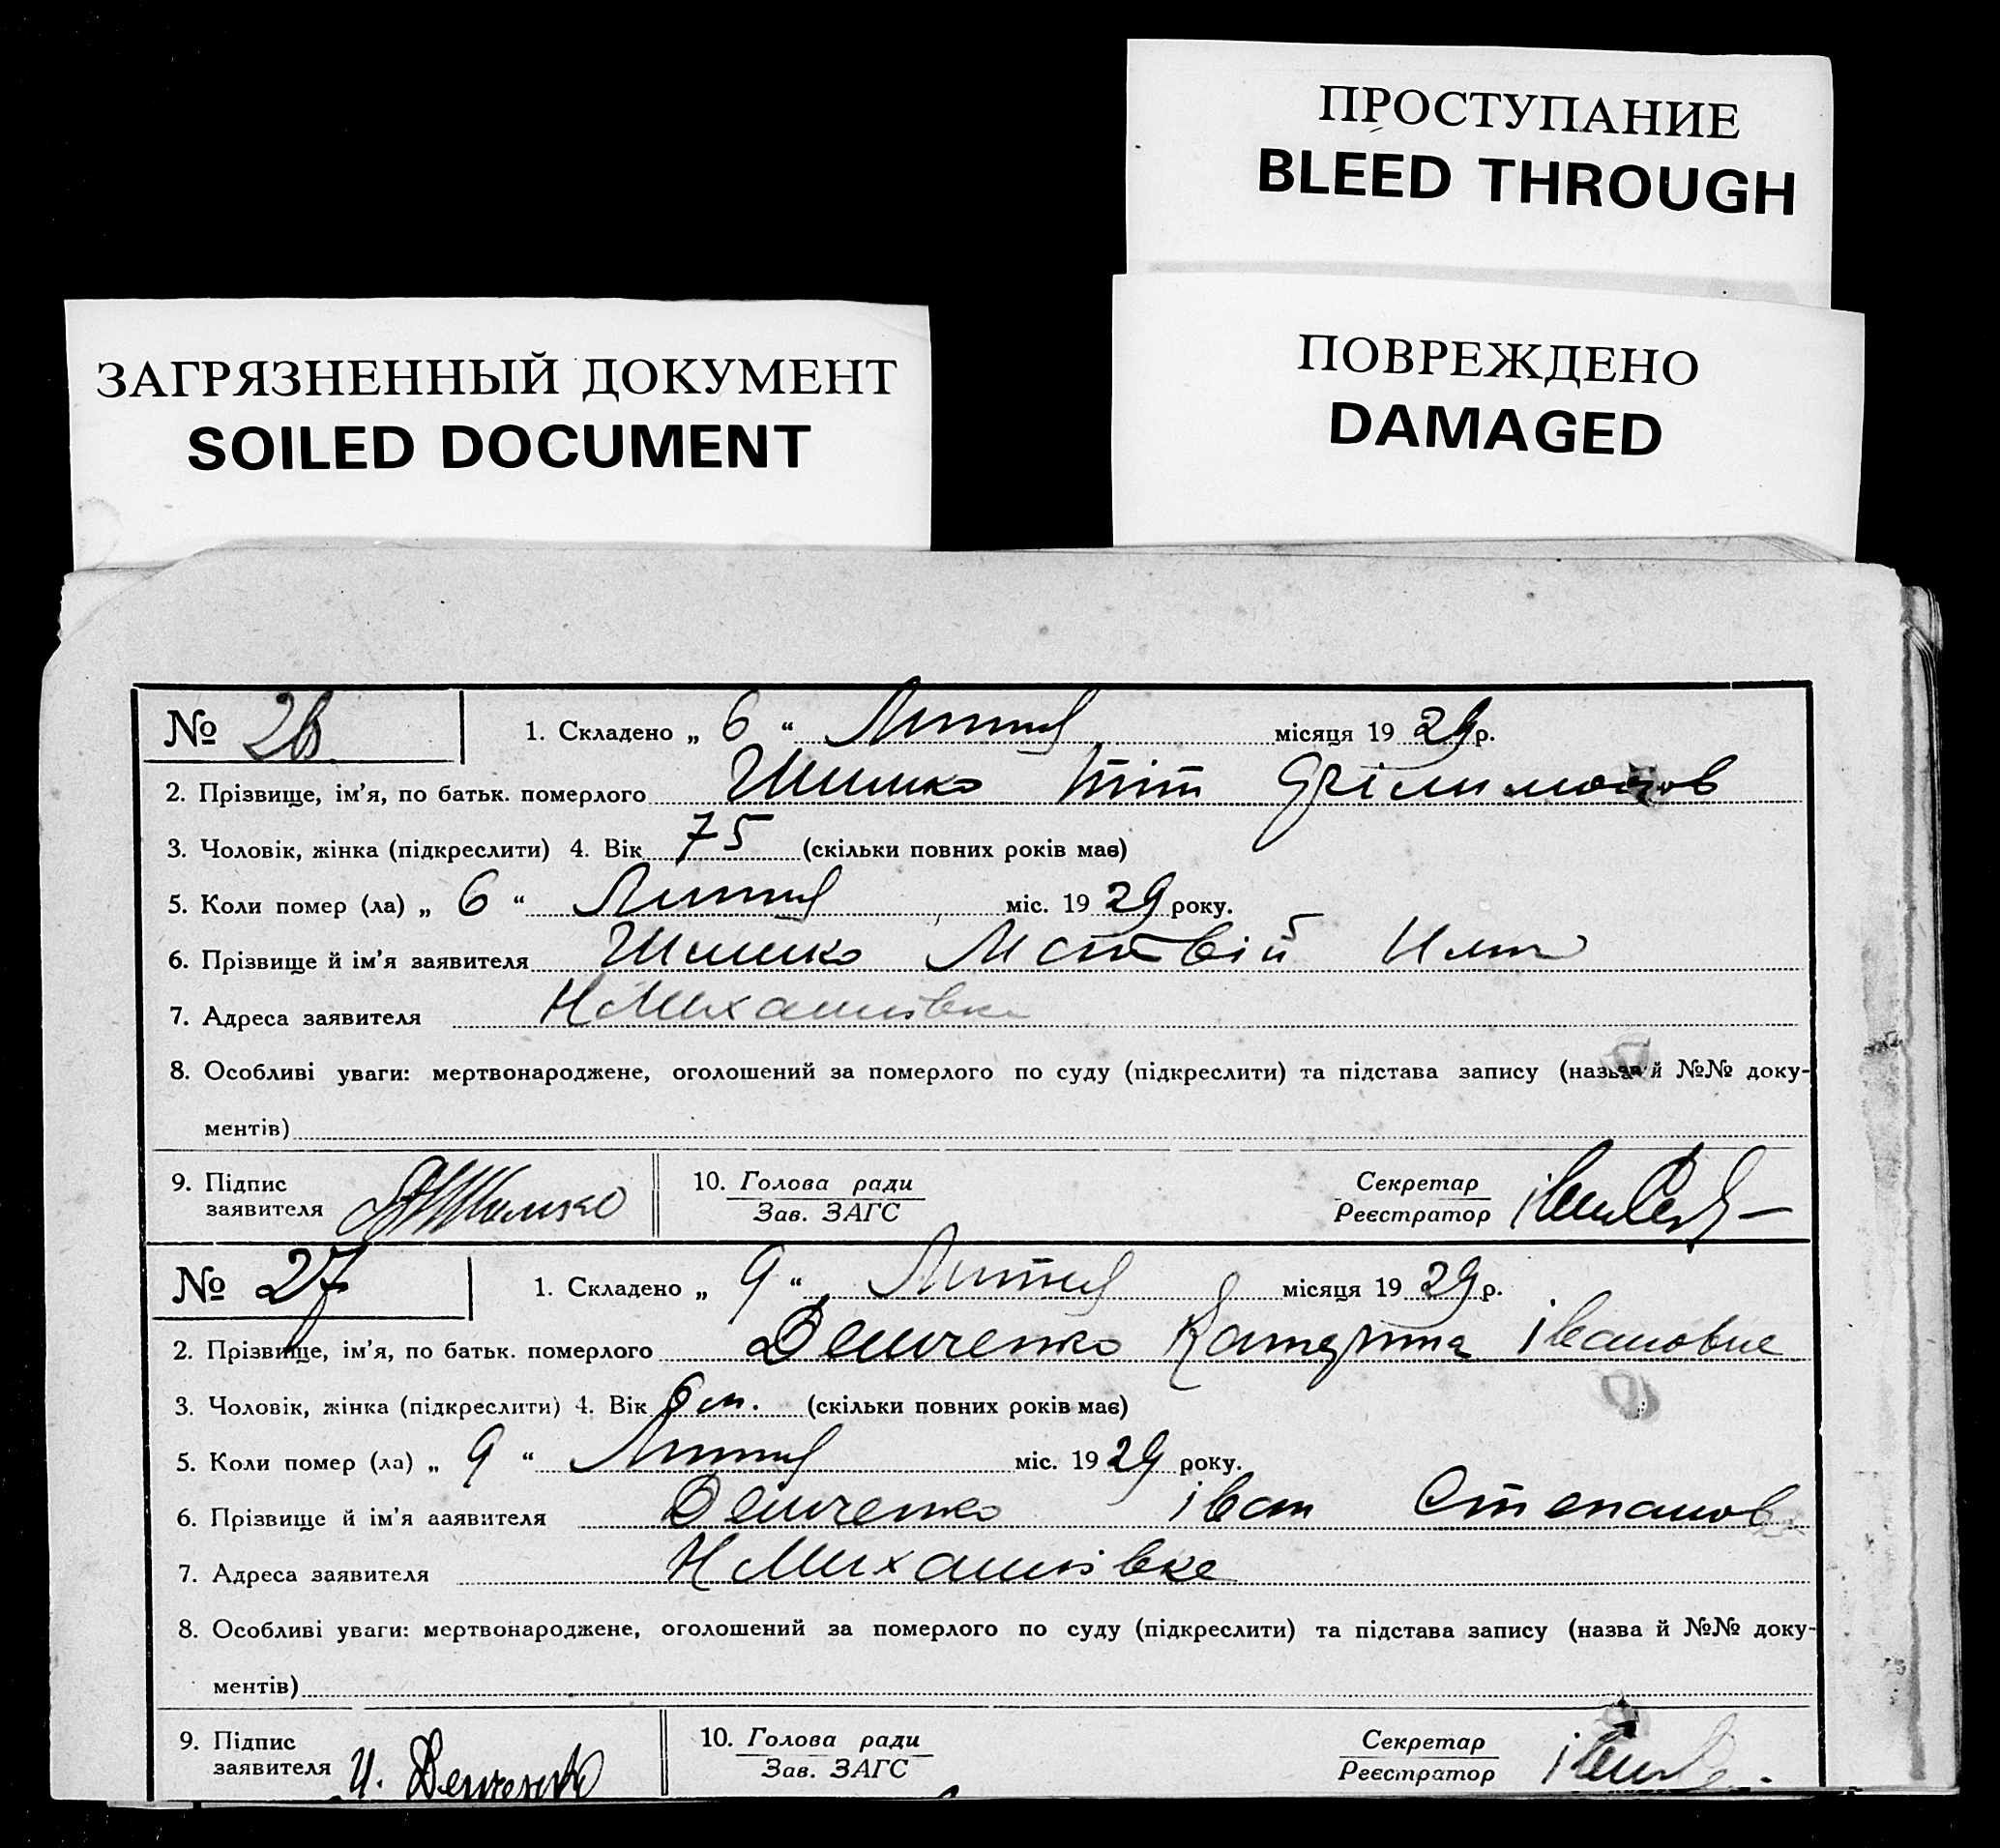 ПРОСТУПАНИЕ
BLEED THROUGH
ЗАГРЯЗНЕННЫЙ ДОКУМЕНТ
SOILED DOCUMENT
ПОВРЕЖДЕНО
DAMAGED
№ 26 1. Складено „ 6 “ місяця 19 29 р.
2. Прізвище, ім'я, по батьк. померлого Тіт Філимонов
3. Чоловік, жінка (підкреслити) 4. Вік 75 (скільки повних років має)
5. Коли помер (ла) „ 6 “ міс. 19 29 року.
6. Прізвище й ім'я заявителя Матвій
7. Адреса заявителя Н Михайлівка
8. Особливі уваги: мертвонароджене, оголошений за померлого по суду (підкреслити) та підстава запису (назва й №№ доку-
ментів)
9. Підпис
заявителя
10. Голова ради
Зав. ЗАГС
Секретар
Реєстратор
№ 27 1. Складено „ 9 “ місяця 19 29 р.
2. Прізвище, ім'я, по батьк. померлого Демченко Катерина Івановна
3. Чоловік, жінка (підкреслити) 4. Вік 6 м. (скільки повних років має)
5. Коли помер (ла) „ 9 “ міс. 19 29 року.
6. Прізвище й ім'я заявителя Демченко Іван Степанов
7. Адреса заявителя Н Михайлівка
8. Особливі уваги: мертвонароджене, оголошений за померлого по суду (підкреслити) та підстава запису (назва й №№ доку-
ментів)
9. Підпис
заявителя И. Демченко
10. Голова ради
Зав. ЗАГС
Секретар
Реєстратор